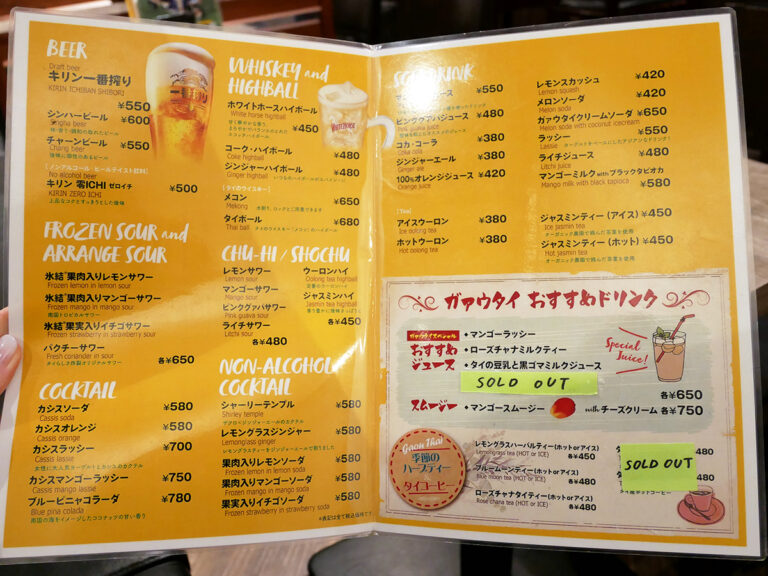 BEER
Draft beer
キリン一番搾り
KIRIN ICHIBAN SHIBORI
¥550
シンハービール ¥600
Singha beer
チャーンビール ¥550
Chang beer
(ノンアルコール・ビールテイスト飲料)
No alcohol beer
キリン 零ICHI ゼロイチ ¥500
KIRIN ZERO ICHI
上品なコクとすっきりとした後味
FROZEN SOUR and
ARRANGE SOUR
氷結®果肉入りレモンサワー
Frozen lemon in lemon sour
氷結®果肉入りマンゴーサワー
Frozen mango in mango sour
南国トロピカルサワー
氷結®果実入りイチゴサワー
Frozen strawberry in strawberry sour
パクチーサワー
Fresh coriander in sour
各¥650
COCKTAIL
カシスソーダ ¥580
Cassis soda
カシスオレンジ ¥580
Cassis orange
カシスラッシー ¥700
Cassis lassie
カシスマンゴーラッシー ¥750
Cassis mango lassie
ブルーピニャコラーダ ¥780
Blue pina colada
南国の海をイメージしたココナッツの甘い香り
WHISKEY and
HIGHBALL
ホワイトホースハイボール
White horse highball
¥450
コーク・ハイボール ¥480
Coke highball
ジンジャーハイボール ¥480
Ginger highball
[タイのウイスキー]
メコン ¥650
Mekong
タイボール ¥680
Thai ball
CHU-HI / SHOCHU
レモンサワー
Lemon sour
マンゴーサワー
Mango sour
ピンクグァバサワー
Pink guava sour
ライチサワー
Litchi sour
ウーロンハイ
Oolong tea highball
ジャスミンハイ
Jasmin tea highball
各¥450
各¥480
NON-ALCOHOL
COCKTAIL
シャーリーテンプル ¥580
Shirley temple
レモングラスジンジャー ¥580
Lemongrass ginger
果肉入りレモンソーダ ¥580
Frozen lemon in lemon soda
果肉入りマンゴーソーダ ¥580
Frozen mango in mango soda
果実入りイチゴソーダ ¥580
Frozen strawberry in strawberry soda
*表記は全て税込価格です。
¥550
ピンクグァバジュース ¥480
Pink guava juice
コカ・コーラ ¥380
Coka cola
ジンジャーエール ¥380
Ginger ale
100%オレンジジュース ¥420
Orange juice
[Tea]
アイスウーロン ¥380
Ice oolong tea
ホットウーロン ¥380
Hot oolong tea
レモンスカッシュ ¥420
Lemon squash
メロンソーダ ¥420
Melon soda
ガァウタイクリームソーダ ¥650
Melon soda with coconut icecream
ラッシー ¥550
Lassie
ライチジュース ¥480
Litchi juice
マンゴーミルク with ブラックタピオカ
Mango milk with black tapioca ¥580
ジャスミンティー (アイス) ¥450
Ice jasmin tea
オーガニック農園で摘んだ茶葉を使用
ジャスミンティー (ホット) ¥450
Hot jasmin tea
オーガニック農園で摘んだ茶葉を使用
ガァウタイ おすすめドリンク
ガァウタイスペシャル
おすすめ
ジュース
・マンゴーラッシー
・ローズチャナミルクティー
・タイの豆乳と黒ゴマミルクジュース
SOLD OUT
Special
Juice!
各¥650
スムージー ・マンゴースムージー with チーズクリーム 各¥750
Gaau Thai
季節の
ハーブティー
タイコーヒー
レモングラスハーバルティー(ホット or アイス)
Lemongrass tea (HOT or ICE) 各¥450
ブルームーンティー(ホット or アイス)
Blue moon tea (HOT or ICE) 各¥480
ローズチャナタイティー(ホット or アイス)
Rose chana tea (HOT or ICE) 各¥480
SOLD OUT